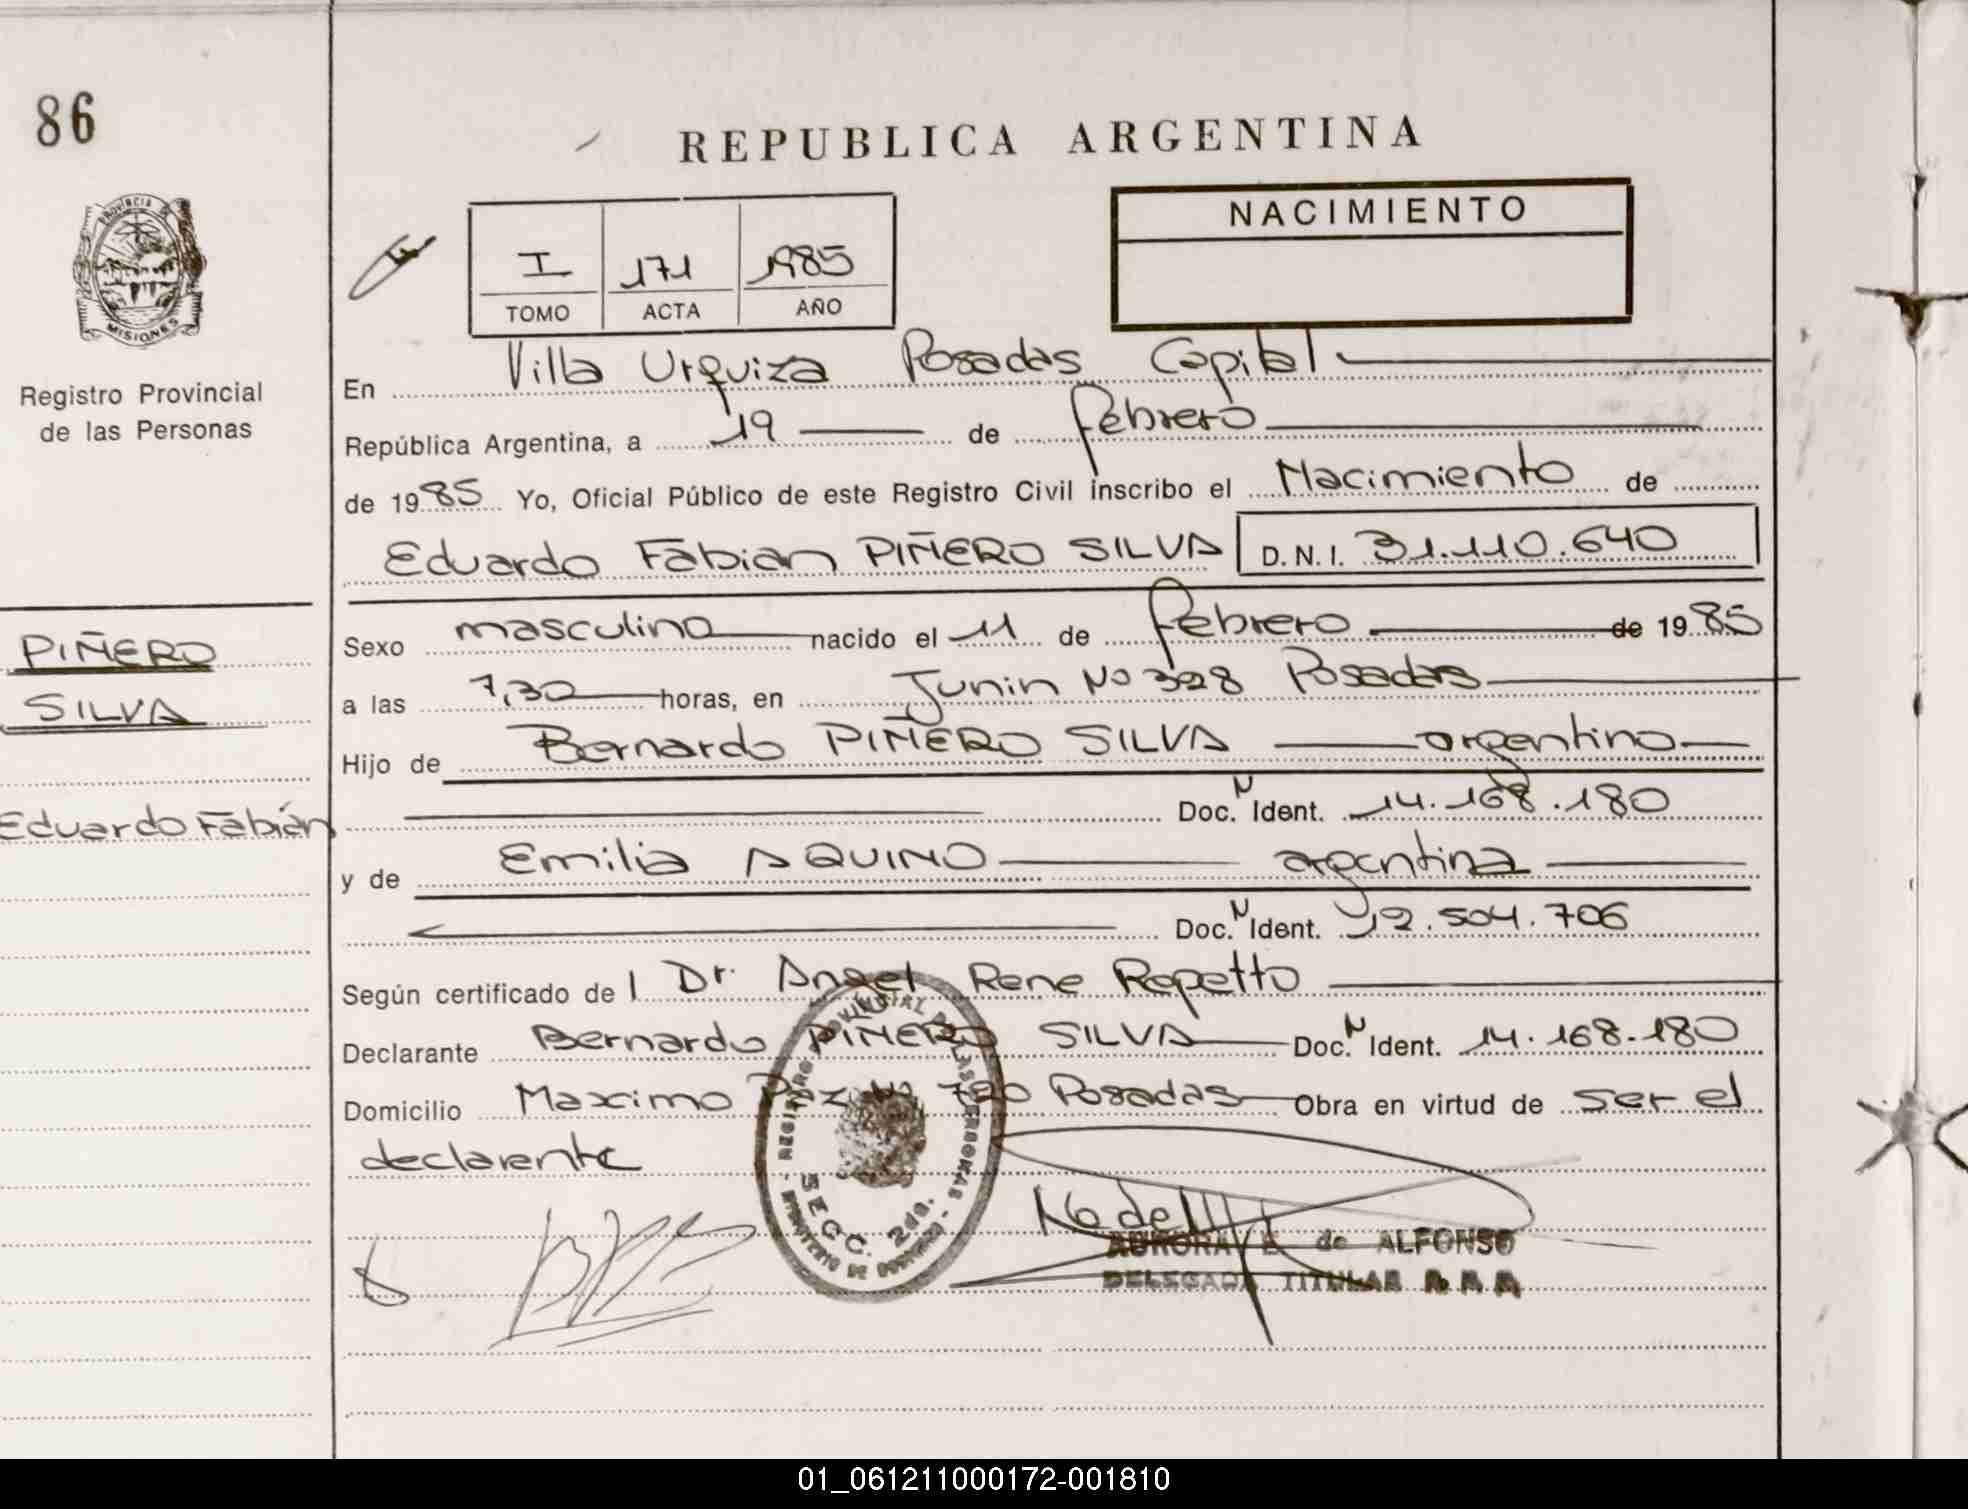 86
REPUBLICA ARGENTINA
PROVINCIA DE
MISIONES
Registro Provincial
de las Personas
NACIMIENTO
I 171 1985
TOMO ACTA AÑO
En Villa Urquiza Posadas Capital
República Argentina, a 19 de febrero
de 1985 Yo, Oficial Público de este Registro Civil inscribo el Nacimiento de
Eduardo Fabian PIÑERO SILVA D.N.I. 31.110.640
PIÑERO
SILVA
Eduardo Fabián
Sexo masculino nacido el 11 de febrero de 1985
a las 7,30 horas, en Junin Nº 328 Posadas
Hijo de Bernardo PIÑERO SILVA argentino
Doc. N Ident. 14.168.180
y de Emilia AQUINO argentina
Doc. N Ident. 12.504.706
Según certificado del Dr. Angel Rene Repetto
Declarante Bernardo PIÑERO SILVA Doc. N Ident. 14.168.180
Domicilio Maximo Paz Nº 720 Posadas Obra en virtud de ser el
declarante
REGISTRO PROVINCIAL DE LAS PERSONAS
SECC. 2da.
MINISTERIO DE GOBIERNO
AURORA E. de ALFONSO
DELEGADA TITULAR R. P. P.
01_061211000172-001810